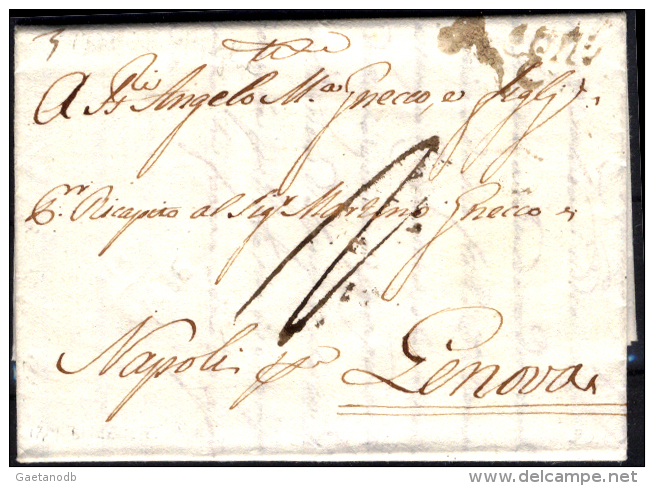 A Sri Angelo M.a Gnecco, e figlj
Pr. Ricapito al Sigr. Martino Gnecco
Napoli per Genova
Gaetanodb
www.delcampe.net